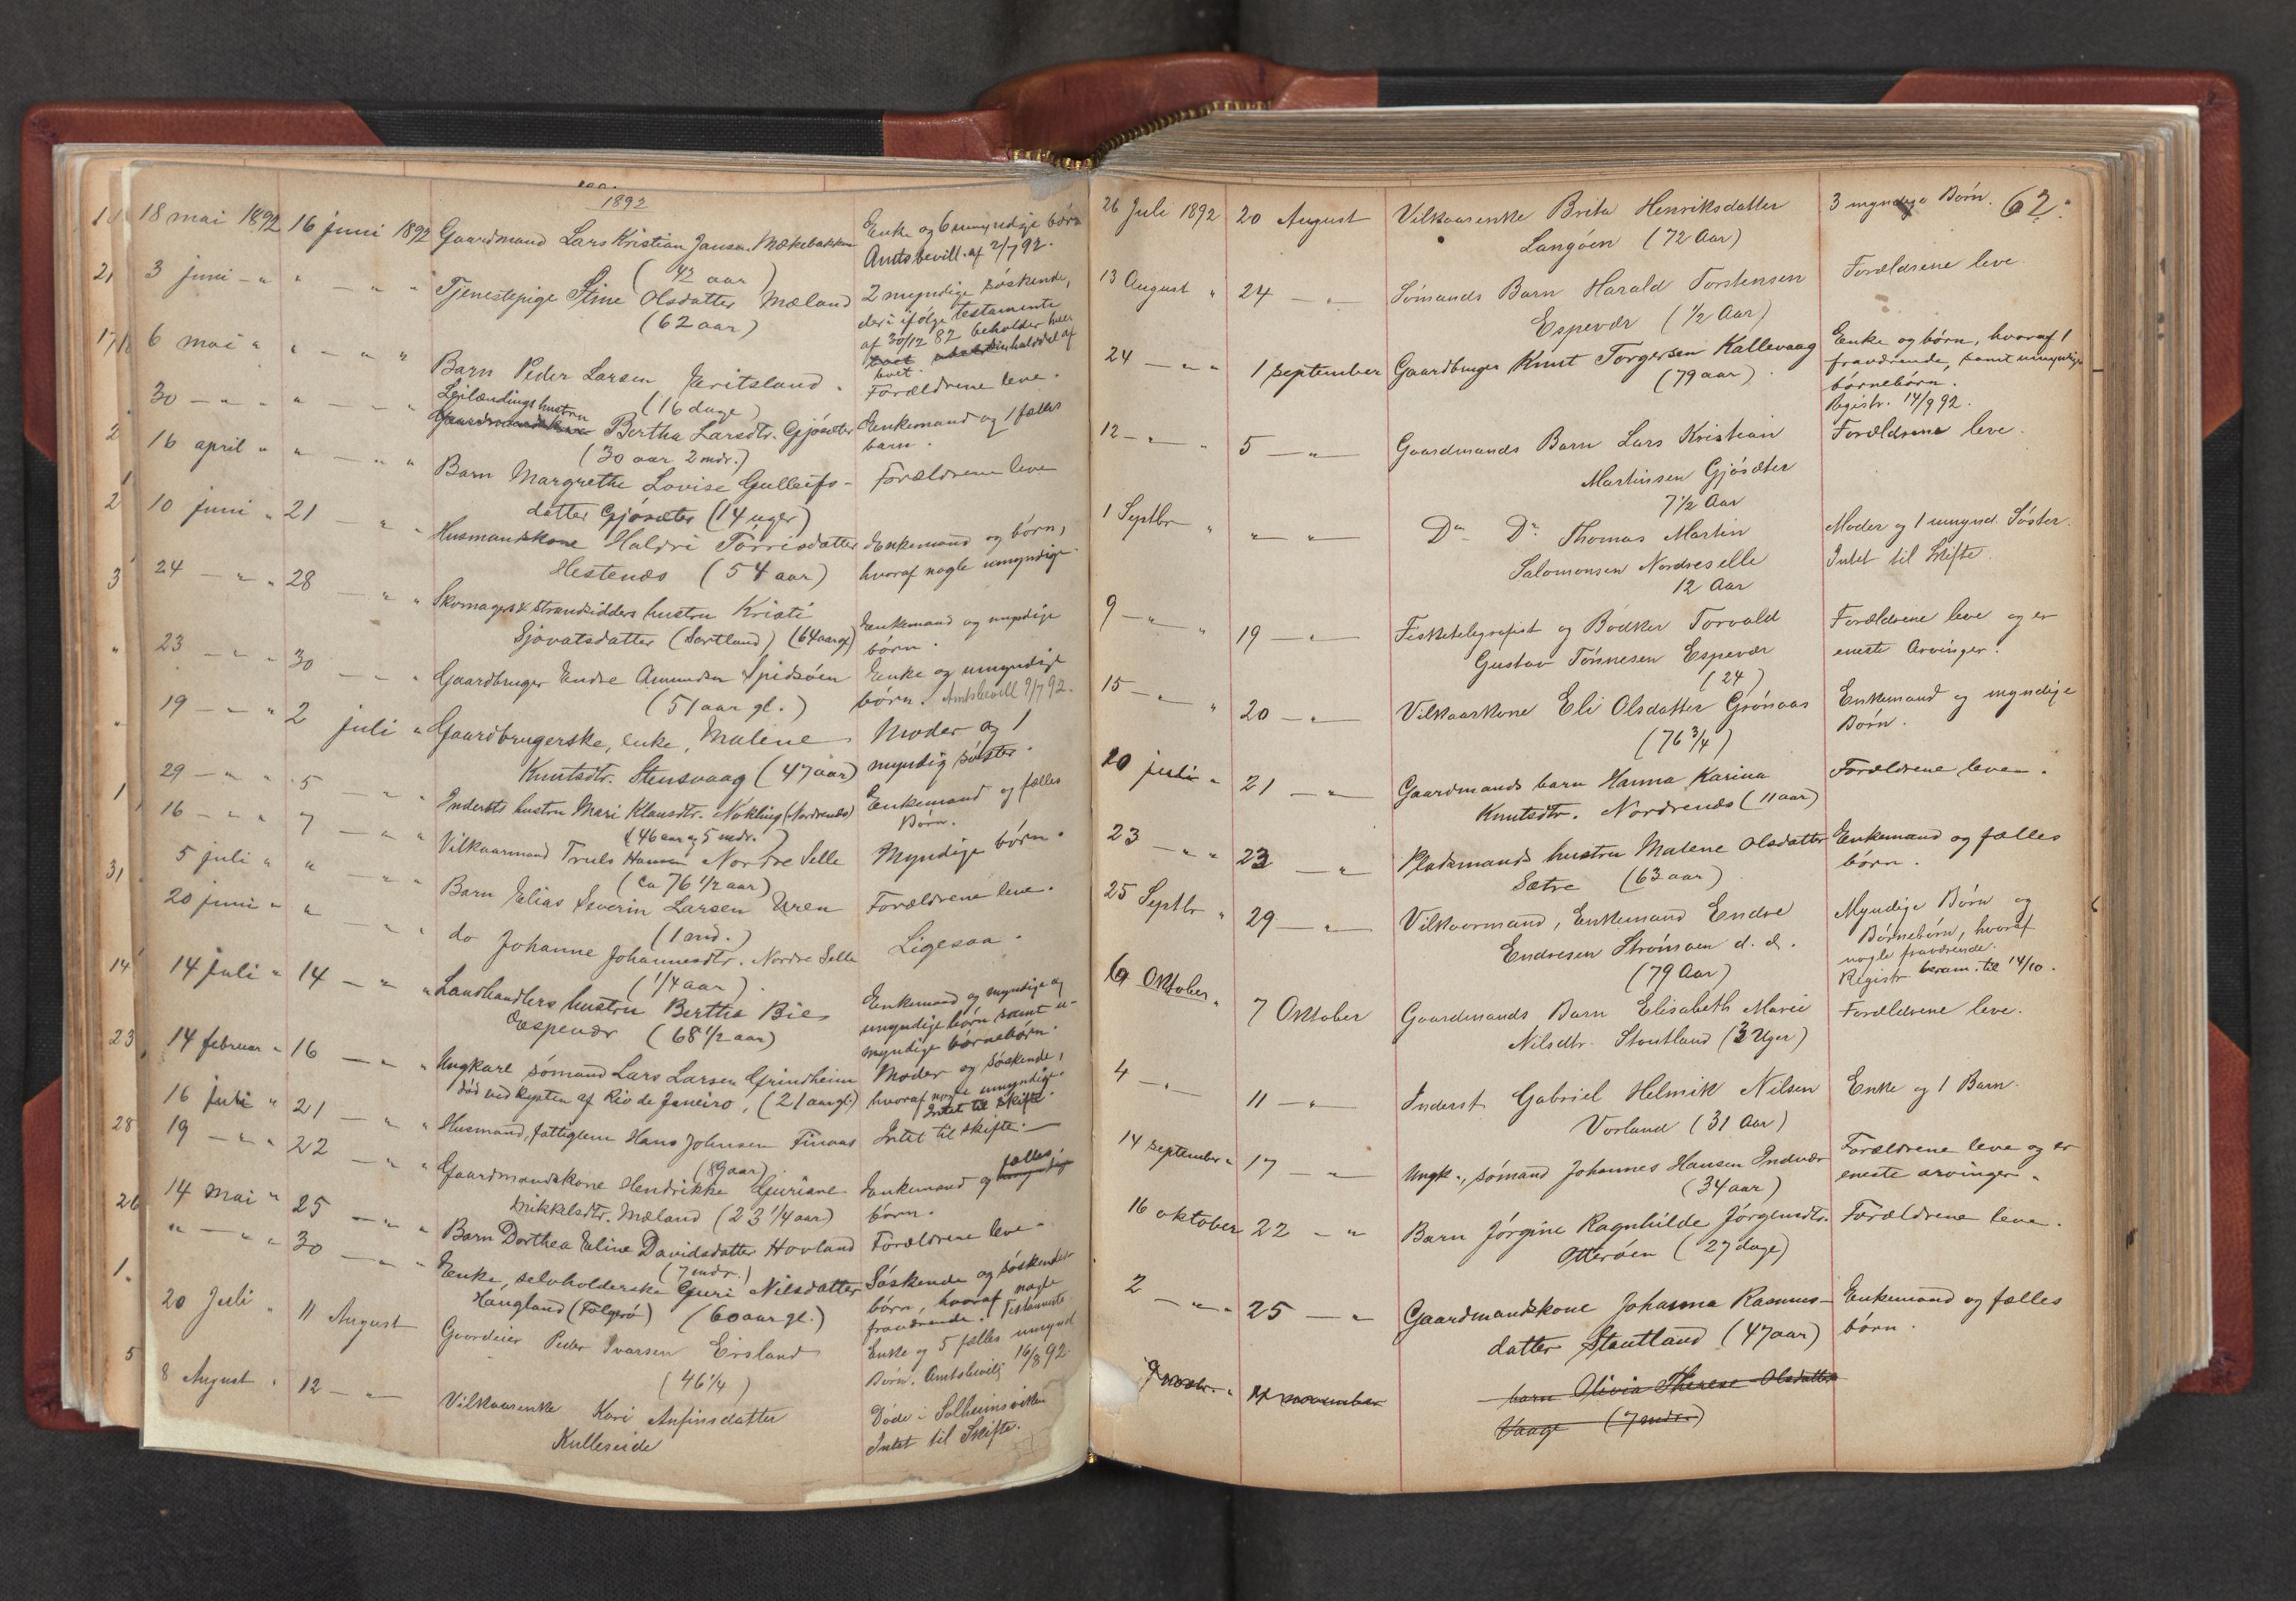 1892
18 mai 1892 16 juni 1892 Gaardmand Lars Kristian Jansen Mækebakken Enke og 6 umyndige børn
(42 aar) Amtsbevill. af 2/7 92.
3 juni - " " - " " Tjenestepige Stine Olsdatter Mæland 2 myndige søskende,
(62 aar) der i følge testamente
af 30/12 82 beholder hele
boet
6 mai " " - " " Barn Peder Larsen Øritsland. Forældrene leve.
(16 dage)
30 - " " " - " Leilændingshustru
Bertha Larsdtr. Gjøsæter Enkemand og 1 fælles
(30 aar 2 mdr.) barn.
16 april " " - " " Barn Margrethe Lovise Gulleifs- Forældrene leve
datter Gjøsæter (14 uger)
10 juni " 21 - " " Husmandskone Haldri Tørrisdatter Enkemand og børn,
Hestenæs (54 aar) hvoraf nogle umyndige.
24 - " " 28 - " " Skomager & strandsidders hustru Kristi Enkemand og myndige
Sjovatsdatter (Sortland) (64 aar gl) børn.
23 - " " 30 - " " Gaardbruger Endre Amundsen Spidsøen Enke og umyndige
(51 aar gl.) børn. Amtsbevill 9/7 92.
19 - " " 2 juli " Gaardbrugerske, enke, Malene Moder og 1
Knutsdtr. Stensvaag (47 aar) myndig søster.
29 - " " 5 - " " Indersts hustru Mari Klausdtr. Nøkling (Nordrenæs) Enkemand og fælles
(46 aar og 5 mdr.) Børn.
16 - " " 7 - " " Vilkaarmand Truls Hansen Nordre Selle Myndige børn.
(ca 76 1/2 aar)
5 juli " " - " " Barn Elias Severin Larsen Uren Forældrene leve.
(1 md.)
20 juni " " - " " do Johanne Johannesdtr. Nordre Selle Ligesaa.
(1/4 aar)
14 juli " 14 - " " Landhandlers hustru Bertha Bie Enkemand og myndige og
Espevær (68 1/2 aar) umyndige børn samt u-
myndige børnebørn.
14 februar " 16 - " " Ungkarl sømand Lars Larsen Grindheim Moder og søskende,
død ved kysten af Rio de Janeiro, (21 aar gl.) hvoraf nogle umyndige.
Intet til skifte.
16 juli " 21 - " " Husmand, fattiglem Hans Johnsen Finaas Intet til skifte.
(89 aar)
19 - " " 22 - " " Gaardmandskone Hendrikke Guriane Enkemand og fælles
Mikkelsdtr. Mæland (23 1/4 aar) børn.
14 mai " 25 - " " Barn Dorthea Eline Davidsdatter Hovland Forældrene leve.
(7 mdr.)
" - " " 30 - " " Enke, selvholderske Guri Nilsdatter Søskende og søskende-
Haugland (Følgerø) (60 aar gl.) børn, hvoraf nogle
fraværende. Testamente
20 Juli " 11 August Gaardeier Peder Ivarsen Eirsland Enke og 5 fælles umynd
(46 1/4) Børn. Amtsbevilg 16/8 92.
8 August " 12 - " Vilkaarsenke Kari Anfinsdatter Døde i Solheimsviken
Kulleseide Intet til Skifte.
62.
26 Juli 1892 20 August Vilkaarsenke Brita Henriksdatter 3 myndige Børn.
Langøen (72 Aar)
13 August " 24 - " Sømands Barn Harald Torstensen Forældrene leve.
Espevær (1/2 Aar)
24 - " " 1 september Gaardbruger Knut Torgersen Kallevaag Enke og børn, hvoraf 1
(79 aar) fraværende, samt umyndige
børnebørn.
Registr. 14/9 92.
12 - " " 5 - " Gaardmands Barn Lars Kristian Forældrene leve.
Martinsen Gjøsæter
7 1/2 Aar
1 Septbr " " " Do Do Thomas Martin Moder og 1 umynd. Søster.
Salomonsen Nordreselle Intet til Skifte.
12 Aar
9 - " " 19 - " Fisketelegrafist og Bødker Torvald Forældrene leve og er
Gustav Tønnesen Espevær eneste Arvinger.
(24)
15 - " " 20 - " Vilkaarskone Eli Olsdatter Grønaas Enkemand og myndige
(76 3/4) Børn.
20 juli " 21 - " Gaardmands barn Hanna Karina Forældrene leve.
Knutsdtr. Nordrenæs (11 aar)
23 - " " 23 - " Pladsmands hustru Malene Olsdatter Enkemand og fælles
Sætre (63 aar) børn.
25 Septbr " 29 - " Vilkaarmand, Enkemand Endre Myndige Børn og
Endresen Strømøen d. d. Børnebørn, hvoraf
(79 Aar) nogle fraværende.
Registr beram. til 14/10.
6 Oktober " 7 Oktober Gaardmands Barn Elisabeth Marie Forældrene leve.
Nilsdtr. Stoutland (3 Uger)
4 - " 11 - " Inderst Gabriel Helmik Nilsen Enke og 1 Barn.
Vorland (31 Aar)
14 september " 17 - " Ungk., sømand Johannes Hansen Indvær Forældrene leve og er
(34 aar) eneste arvinger.
16 oktober 22 - " Barn Jørgine Ragnhilde Jørgensdtr. Forældrene leve.
Otterøen (27 dage)
2 - " " 25 - " Gaardmandskone Johanna Rasmus- Enkemand og fælles
datter Stoutland (47 aar) børn.
novbr. " november barn Olivia Therese Olsdatter
Vaage (7 mdr.)